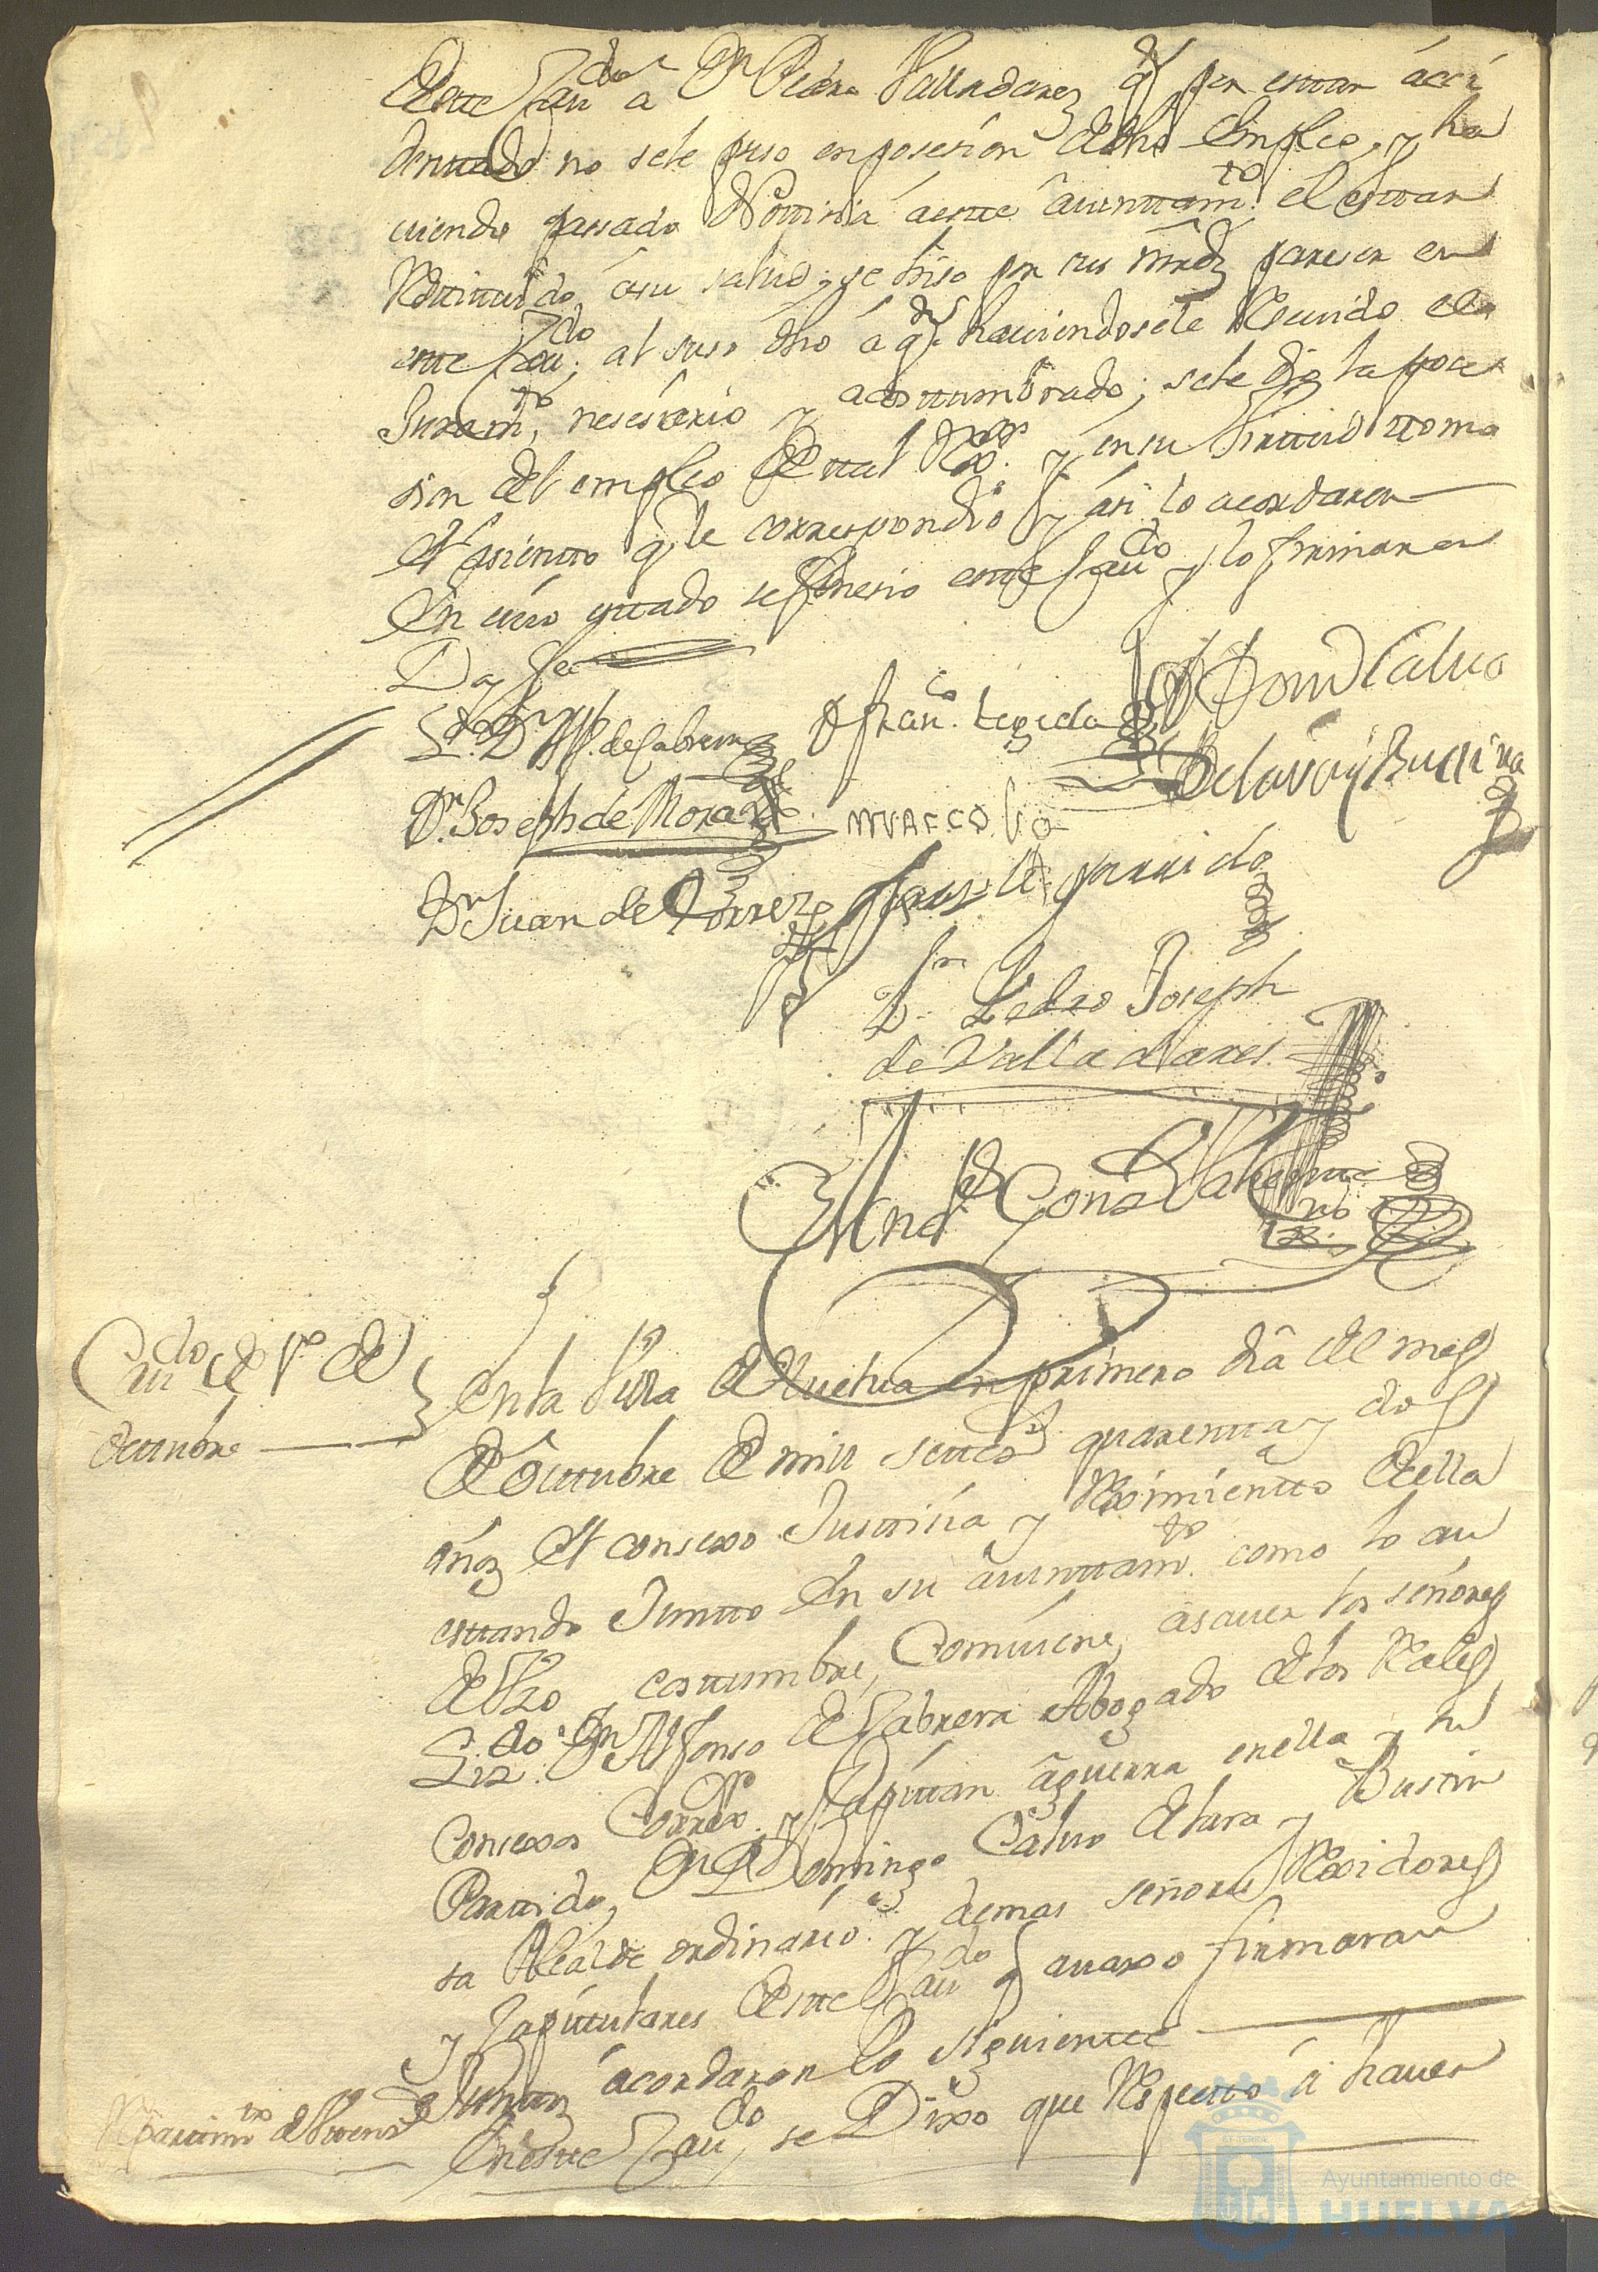 deste Cavdo a Dn Pedro Valladarez q por estar acci
dentado no sele puso en posesion dedho Empleo, y ha
viendo passado Notisia aeste aiuntamto el estar
Restituido, a su salud; se hiso por sus mrdz pareser en
este Cavdo al suso dho á qn haviendosele Resevido el
Juramto nesesario y acostumbrado; sele dio la poce
sion del empleo de tal Rexor y en su Virtud tomo
el asiento q le correspondio y asi lo acordaron
En cuio estado sefenesio este Cavdo y lo firmaron
Doy fee
Ldo Dn Alf. de Cabrera Dn Franco Lezeda Dn Domo Calvo
Dn Joseph de Mora marcos Delara y Bustina
Dn Juan de Torrez garrido
Dn Pedro Joseph
de Valladares
Andrs Gonz
Cavdo de 1o de
Octubre
En la Villa de Huelva en primero dia del mes
de Octubre de mill setecos quarenta y dos
años el consexo Justisia y Reximiento de ella
estando Junto En su aiuntamto como lo an
de Uzo costumbre, Comviene, asaver los señores
Lizdo Dn Alfonso de Cabrera Abogado delos Rales
Consexos Correxor y Capitan aguerra en ella y su
Partido, Dn Domingo Calvo de lara y Bustin
sa Alcalde ordinario y demas señores Rexidores
y Capitulares deste Cavdo q avaxo firmaran
Juntos acordaron lo siguiente
Repartimto de
En este Cavdo se Dixo que Respecto á haver
Ayuntamiento de
HUELVA